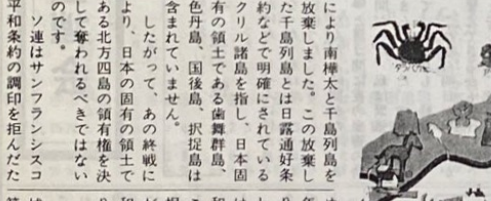 により南樺太と千島列島を
放棄しました。この放棄し
た千島列島とは日露通好条
約などで明確にされている
クリル諸島を指し、日本固
有の領土である歯舞群島、
色丹島、国後島、択捉島は
含まれていません。
したがって、あの終戦に
より、日本の固有の領土で
ある北方四島の領有権を決
して奪われるべきではない
のです。
ソ連はサンフランシスコ
平和条約の調印を拒んだた